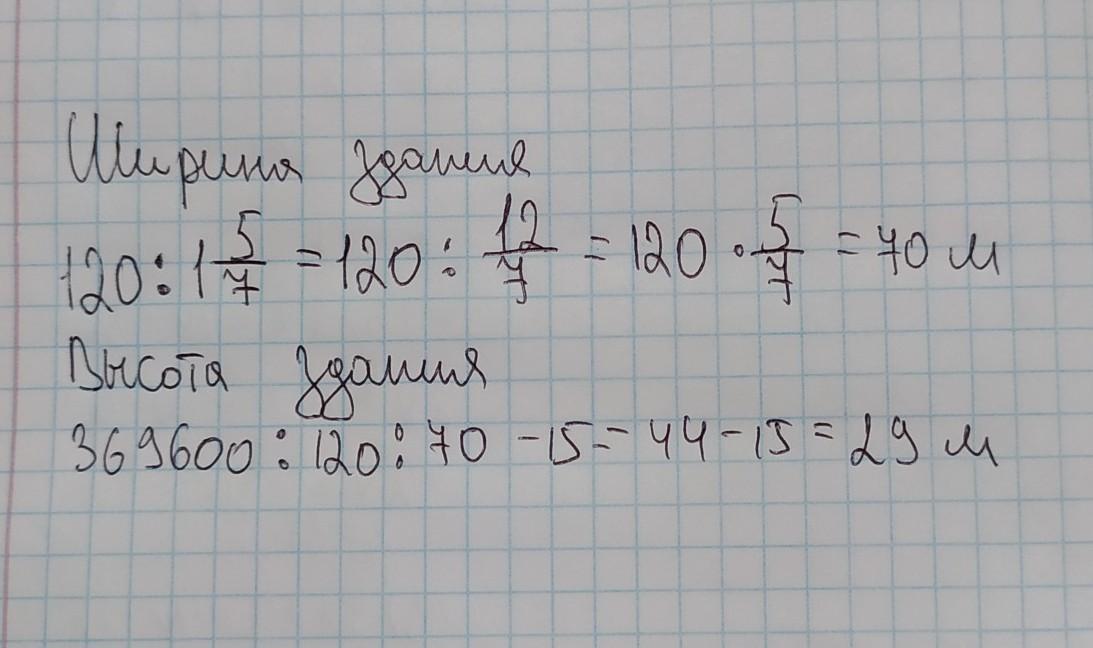 Ширина здания
120 : 1 5/7 = 120 : 12/7 = 120 · 5/7 = 70 м
Высота здания
369600 : 120 : 70 - 15 = 44 - 15 = 29 м